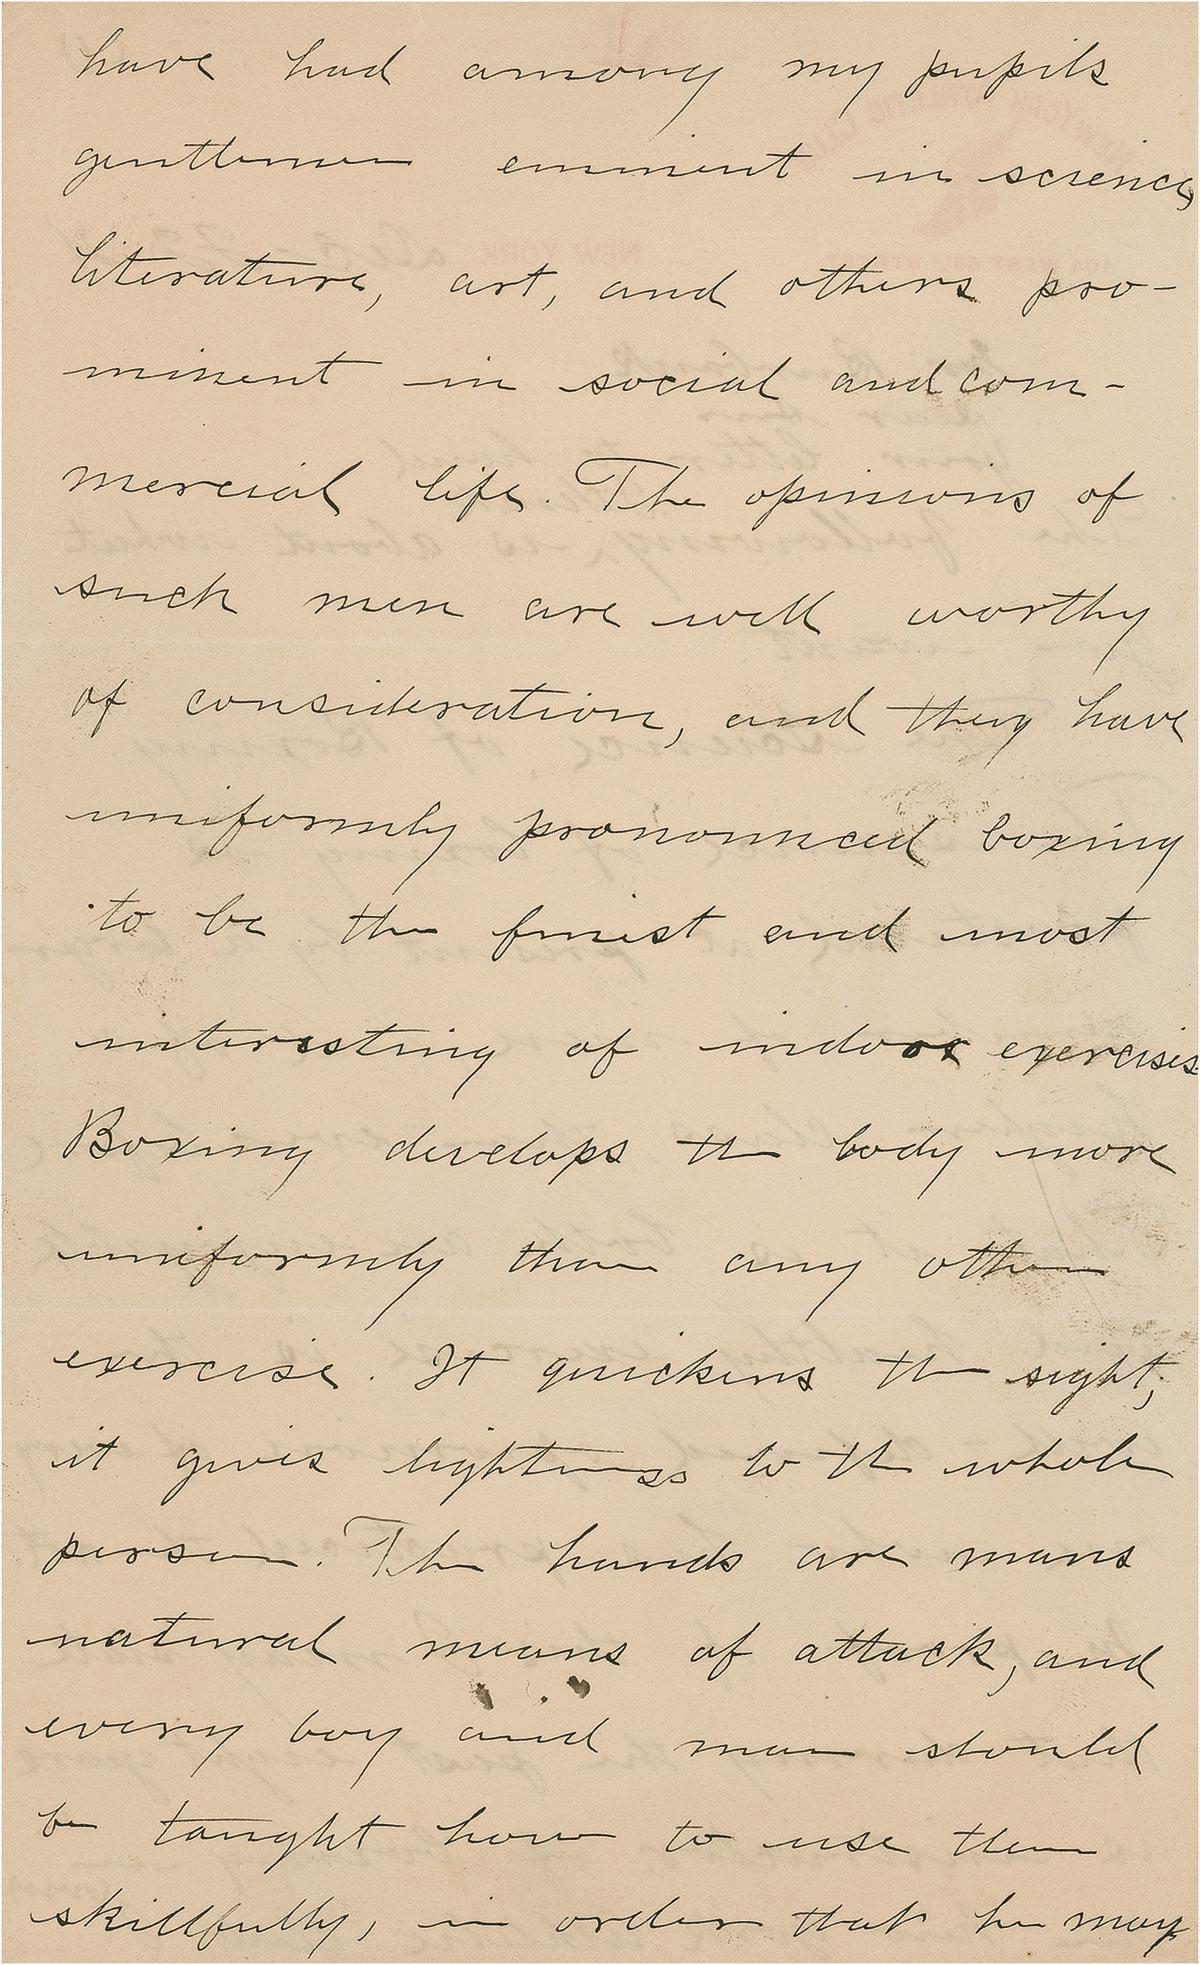 have had among my pupils
gentlemen eminent in science,
literature, art, and others pro-
minent in social and com-
mercial life. The opinions of
such men are well worthy
of consideration, and they have
uniformly pronounced boxing
to be the finest and most
interesting of indoor exercises
Boxing develops the body more
uniformly than any other
exercise. It quickens the sight,
it gives lightness to the whole
person. The hands are mans
natural means of attack, and
every boy and man should
be taught how to use them
skillfully, in order that he may